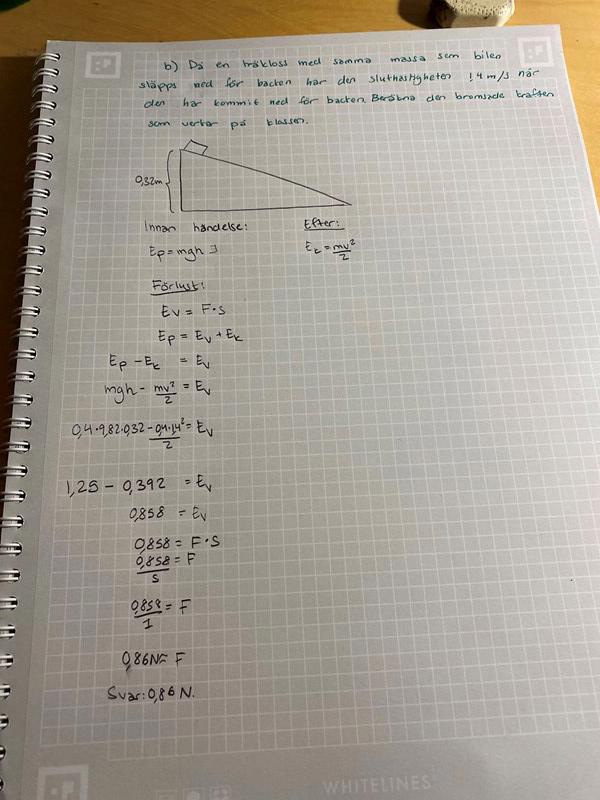 b) Då en träkloss med samma massa som bilen
släpps ned för backen har den sluthastigheten 1,4 m/s när
den har kommit ned för backen. Beräkna den bromsade kraften
som verkar på klossen.
0,32m
Innan händelse: Efter:
Ep = mgh J Ek = mv²/2
Förlust:
Ev = F·s
Ep = Ev + Ek
Ep - Ek = Ev
mgh - mv²/2 = Ev
0,4·9,82·0,32 - 0,4·1,4²/2 = Ev
1,25 - 0,392 = Ev
0,858 = Ev
0,858 = F·S
0,858/s = F
0,858/1 = F
0,86N = F
Svar: 0,86 N.
WHITELINES